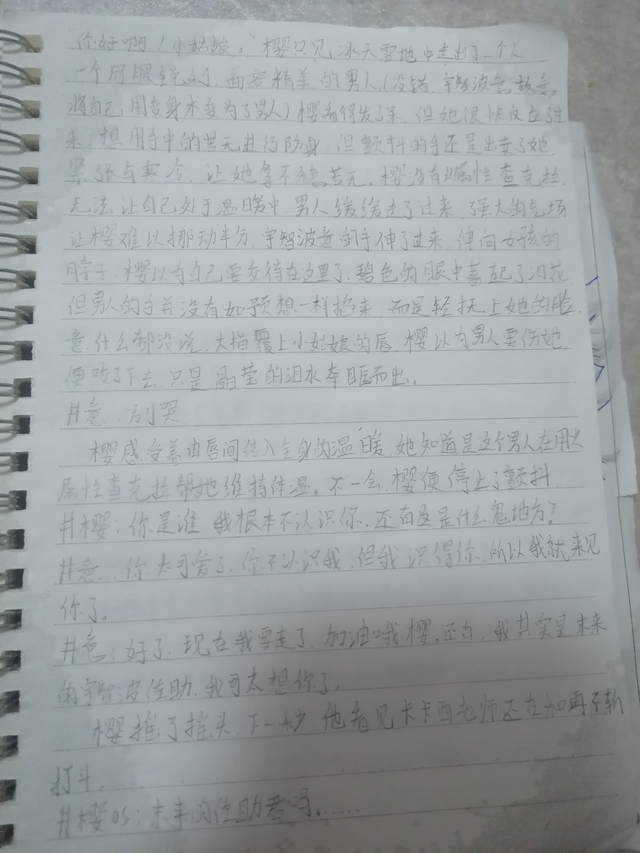 你好啊！小姑娘。"樱只见冰天雪地中走出了一个人
一个 面容精美的男人（没错 宇智波意故意
将自己用变身术变为了男人）樱 但她很快反应过
来，想用手中的苦无进行防身，但颤抖的手还是出卖了她
紧张与寒冷，让她拿不稳苦无。樱没有火属性查克拉，
无法让自己处于温暖中，男人缓缓走了过来，强大的气场
让樱难以挪动半分，宇智波意的手伸了过来，伸向女孩的
脖子，樱以为自己要交待在这里了，碧色的眼中蓄起了泪花
但男人的手并没有如预想一样掐来，而是轻抚上她的脸，
意什么都没说，大指覆上小姑娘的唇，樱以为男人要伤她
便咬了下去，只是晶莹的泪水夺眶而出。
#意：别哭
樱感受着由唇间传入全身的温暖，她知道是这个男人在用火
属性查克拉帮她维持体温，不一会，樱便停止了颤抖，
#樱：你是谁 我根本不认识你，还有这是什么鬼地方？
#意：你太可爱了，你不认识我，但我识得你，所以我就来见
你了。
#意：好了，现在我要走了，加油哦樱。还有，我其实是未来
的宇智波佐助，我可太想你了。
樱抬了抬头，下一秒 他看见卡卡西老师还在和再不斩
打斗。
#樱os：未来的佐助君吗……